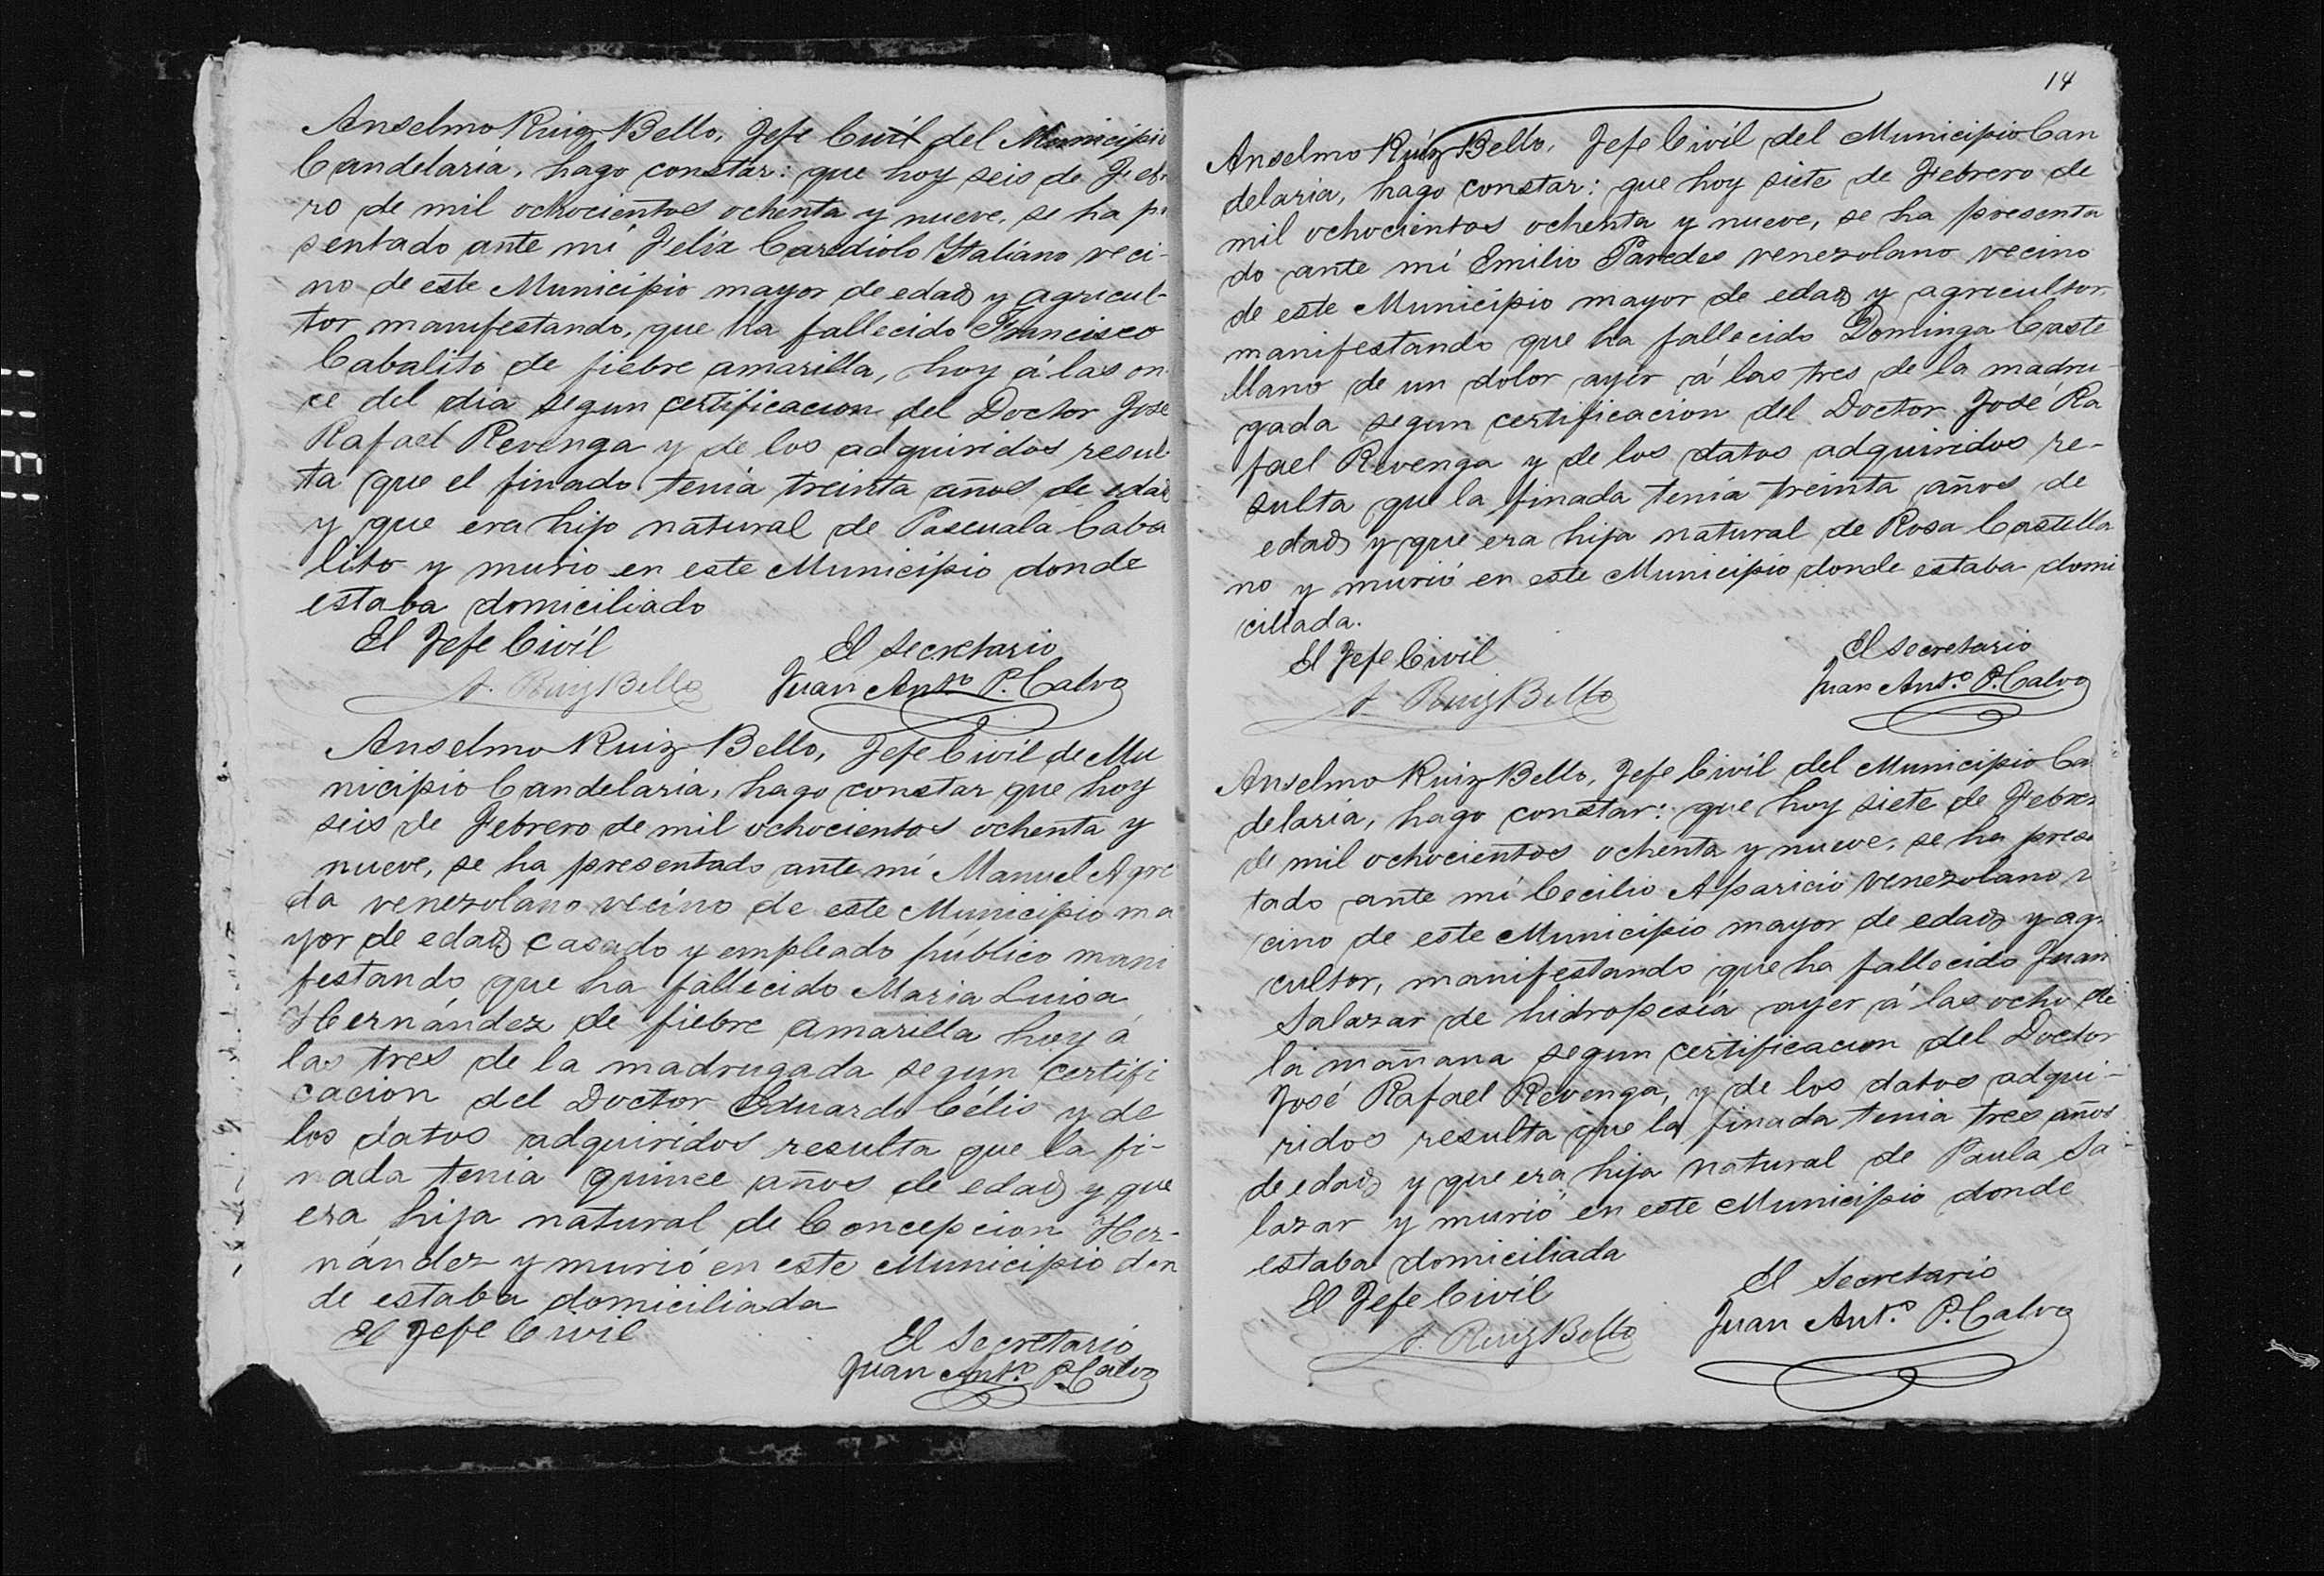 Anselmo Ruiz Bello, Jefe Civil del Municipio
Candelaria, hago constar: que hoy seis de Febre
ro de mil ochocientos ochenta y nueve, se ha pr
sentado ante mí Felix Cardiolo Italiano veci-
no de este Municipio mayor de edad y agricul-
tor manifestando, que ha fallecido Francisco
Cabalito de fiebre amarilla, hoy á las on
ce del dia segun certificacion del Doctor José
Rafael Revenga y de los adquiridos resul
ta que el finado tenía treinta años de edad
y que era hijo natural de Pascuala Caba
lito y murio en este Municipio donde
estaba domiciliado
El Jefe Civíl El Secretario
A. Ruiz Bello Juan Ant.º P. Calvo
Anselmo Ruiz Bello, Jefe Civil de Mu
nicipio Candelaria, hago constar que hoy
seis de Febrero de mil ochocientos ochenta y
nueve, se ha presentado ante mí Manuel Agre
da venezolano vecino de este Municipio ma
yor de edad casado y empleado público mani
festando que ha fallecido Maria Luisa
Hernández de fiebre amarilla hoy á
las tres de la madrugada segun certifi
cacion del Doctor Eduardo Célis y de
los datos adquiridos resulta que la fi-
nada tenia quince años de edad y que
era hija natural de Concepcion Her-
nández y murió en este Municipio don
de estaba domiciliada
El Jefe Civil El Secretario
Juan Ant.º P. Calvo
14
Anselmo Ruíz Bello, Jefe Civíl del Municipio Can
delaria, hago constar: que hoy siete de Febrero de
mil ochocientos ochenta y nueve, se ha presenta
do ante mí Emilio Paredes venezolano vecino
de este Municipio mayor de edad y agricultor
manifestando que ha fallecido Dominga Caste
llano de un dolor ayer á las tres de la madru-
gada segun certificacion del Doctor José Ra
fael Revenga y de los datos adquiridos re-
sulta que la finada tenia treinta años de
edad y que era hija natural de Rosa Castella
no y murió en este Municipio donde estaba domi
ciliada.
El Jefe Civil El Secretario
A. Ruiz Bello Juan Ant.º P. Calvo
Anselmo Ruiz Bello, Jefe Civíl del Municipio Ca
delaria, hago constar: que hoy siete de Febrer
de mil ochocientos ochenta y nueve, se ha prese
tado ante mí Cecilio Aparicio venezolano v
cino de este Municipio mayor de edad y agr
cultor, manifestando que ha fallecido Juan
Salazar de hidropesía ayer á las ocho de
la mañana segun certificacion del Doctor
José Rafael Revenga, y de los datos adqui-
ridos resulta que la finada tenia tres años
de edad y que era hija natural de Paula Sa-
lazar y murió en este Municipio donde
estaba domiciliada
El Jefe Civíl El Secretario
A. Ruiz Bello Juan Ant.º P. Calvo